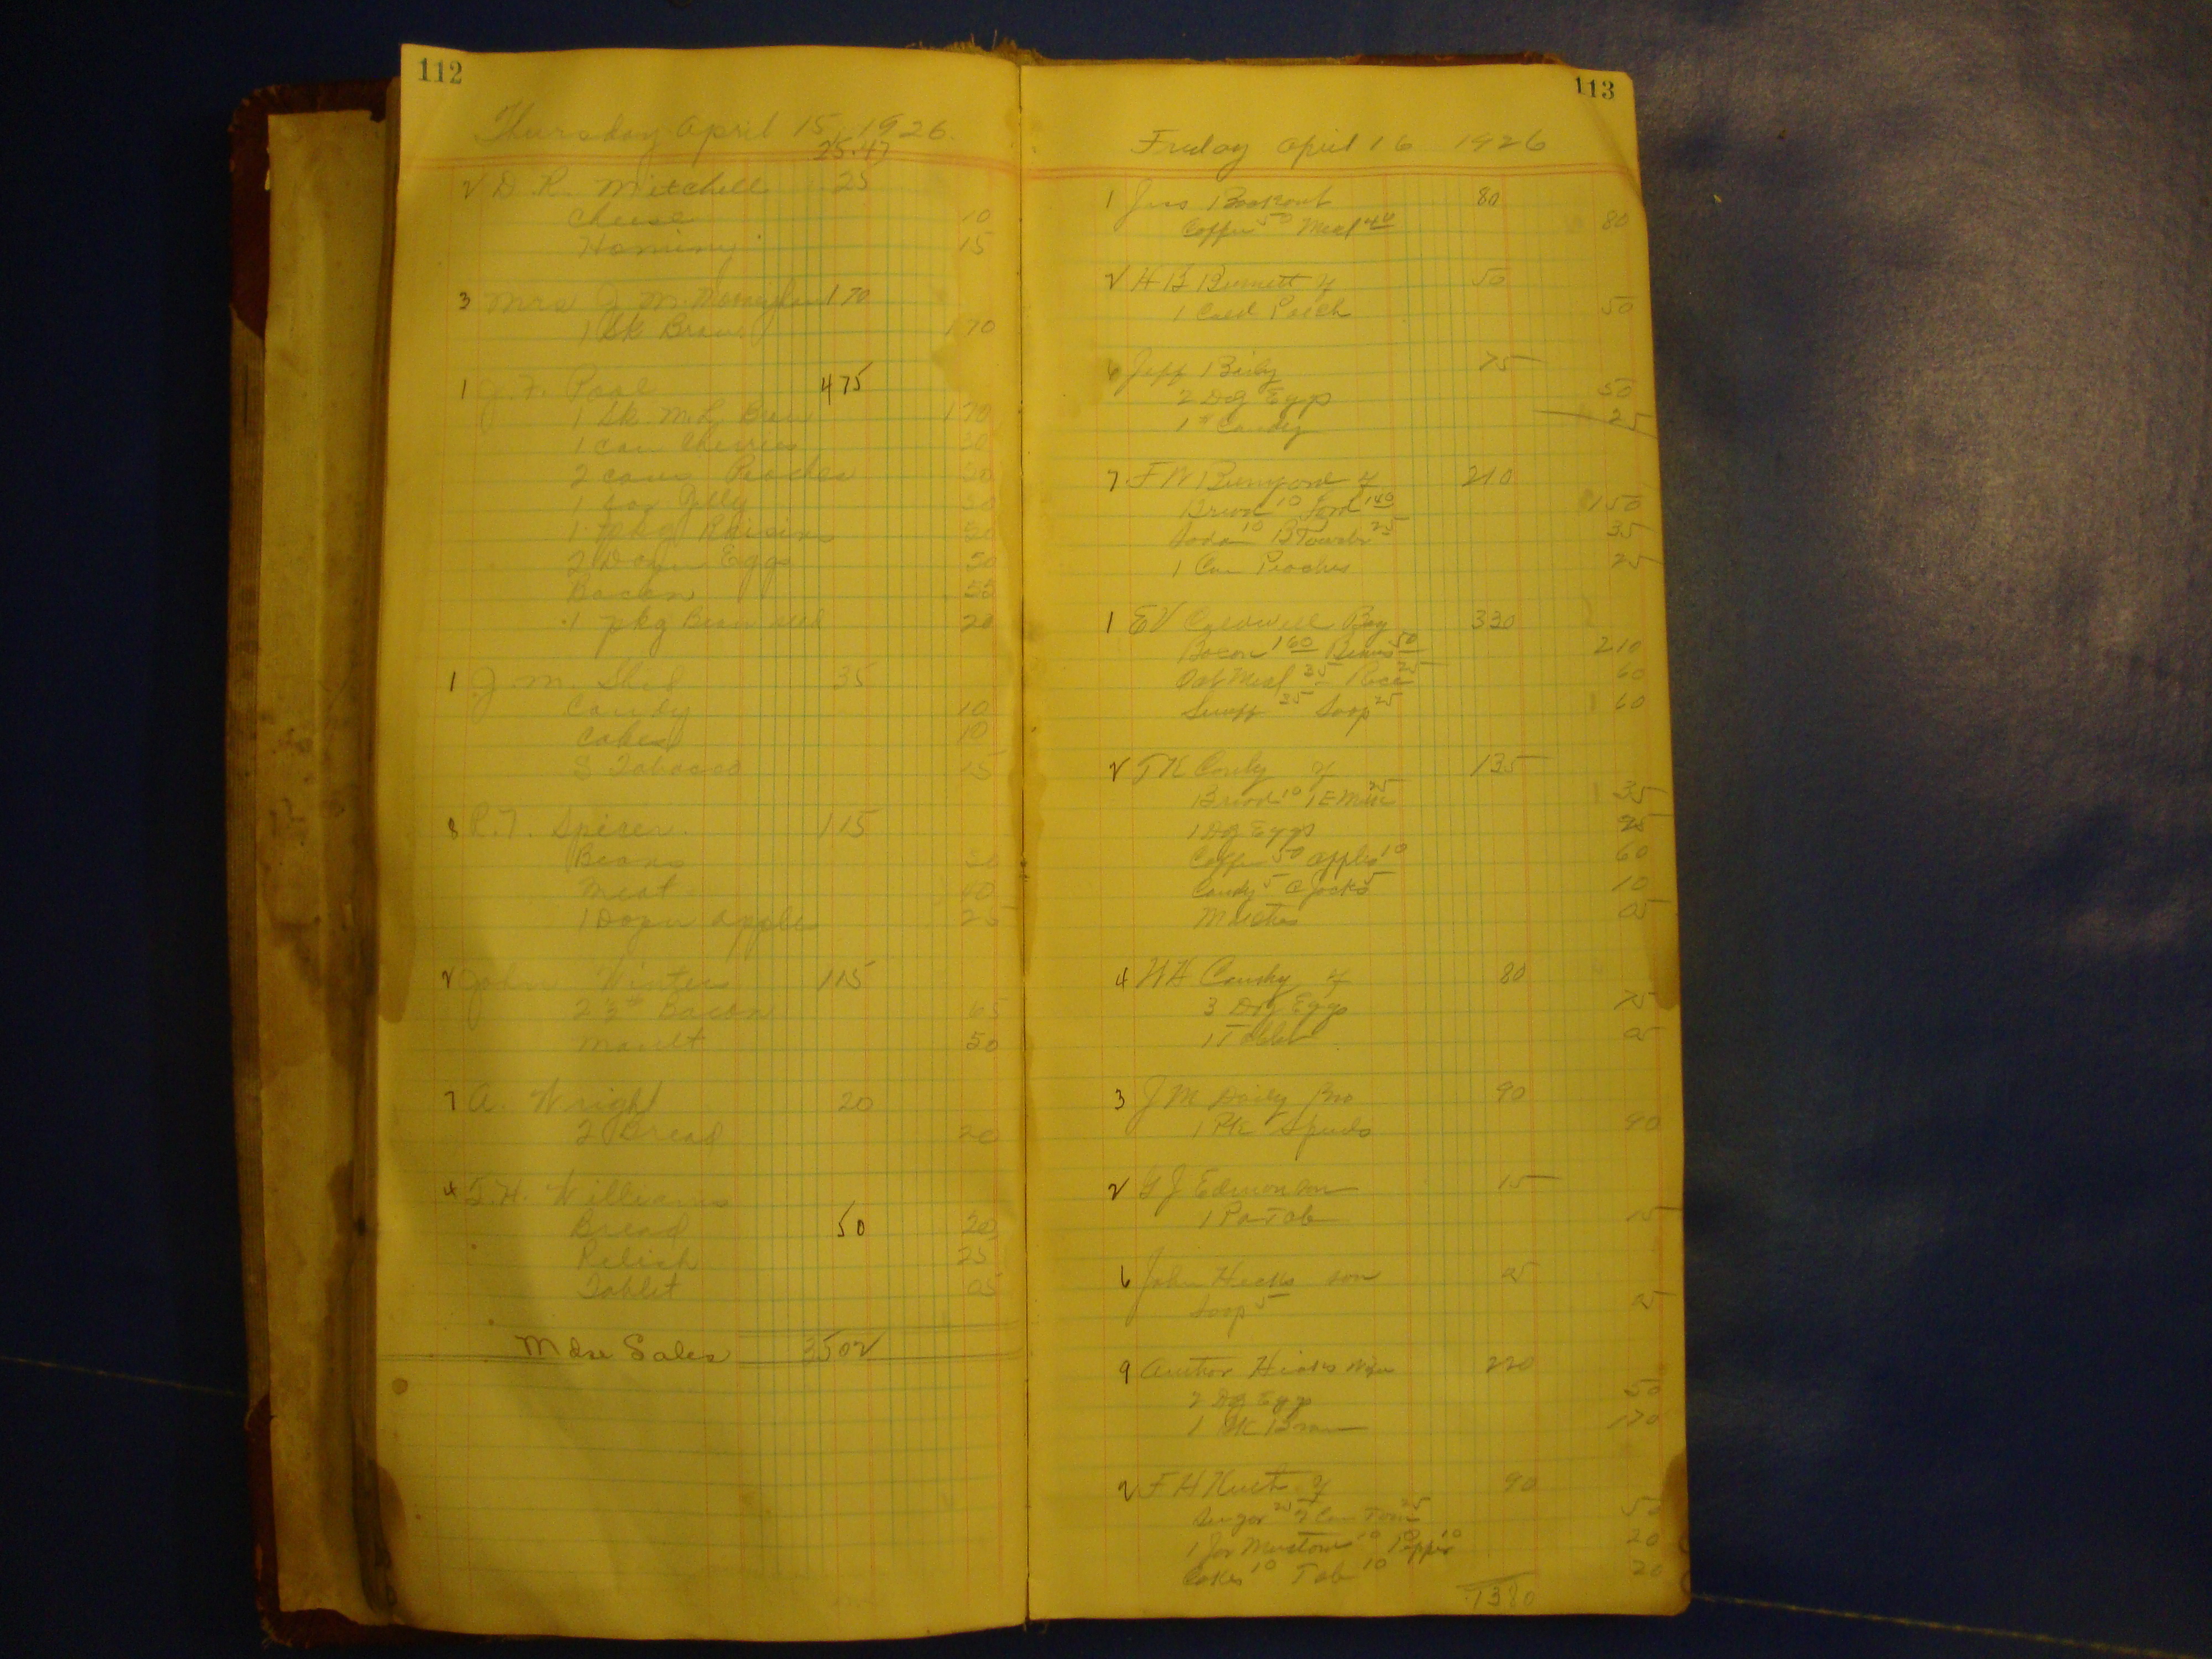 112
Thursday April 15, 1926.
25.47
2 D. R. Mitchell 25
Cheese 10
Hominy 15
3 Mrs J. M. 170
1 Sk Bran 170
1 J. F. Pool 475
1 Sk M.R. Bran 170
1 can Cherries
2 cans Peaches 50
1 Jelly
1 pkg Raisins
2 Dozen Eggs 50
Bacon 55
1 pkg Bean seed 20
1 J. M. Shed 35
Candy 10
Cakes 10
S Tobacco 15
8 R. T. Spicer 115
Beans 50
Meat 40
1 Dozen apples 25
2 John Winter 115
2 3/4 # Bacon 65
Mault 50
7 A. Wright 20
2 Bread 20
4 T. H. Williams
Bread 50 20
Relish 25
Tablet 05
Mdse Sales 3502
113
Friday April 16 1926
1 Jess Bookout 80
Coffee 50 Meal 40 80
2 H B Burnett 50
1 50
6 Jeff Baily 75
2 Dz Eggs 50
1 # Candy 25
7 F W 210
Bread 10 Lard 140 150
Soda 10 B Powder 25 35
1 Can Peaches 25
1 E V Caldwell Boy 330
Bacon 160 Beans 50 210
Oat Meal 35 Rice 25 60
Snuff 35 Soap 25 60
2 T K 135
Bread 10 1 E Milk 25 35
1 Dz Eggs 25
Coffee 50 apples 10 60
Candy 5 C Jacks 5 10
Matches 05
4 W H 80
3 Dz Eggs 75
1 Tablet 05
3 J M Daily Bro 90
1 Pk Spuds 90
2 G J Edmonson 15
1 P a Tob 15
6 John Hicks son 05
Soap 5 05
9 Author Hicks Wife 220
2 Dz Eggs 50
1 Sk Bran 170
2 F H 90
Sugar 25 Can Tom 25 50
1 Jar Mustard 10 Pepper 10 20
Cakes 10 Tob 10 20
1380